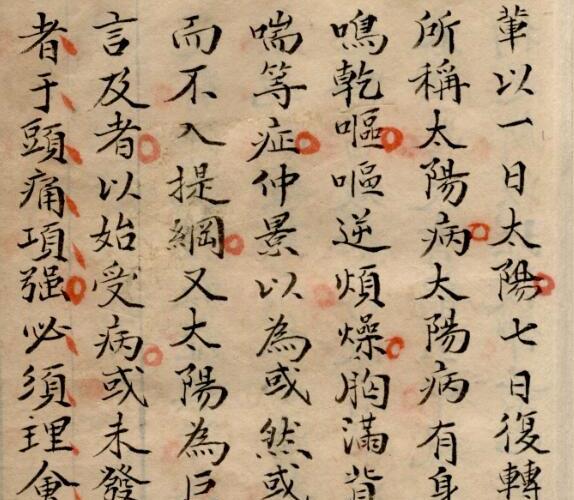 輩以一日太陽七日復轉
所稱太陽病太陽病有身
鳴乾嘔嘔逆煩燥胸滿背
喘等症仲景以為或然或
而不入提綱又太陽為巨
言及者以始受病或未發
者于頭痛項强必須理會